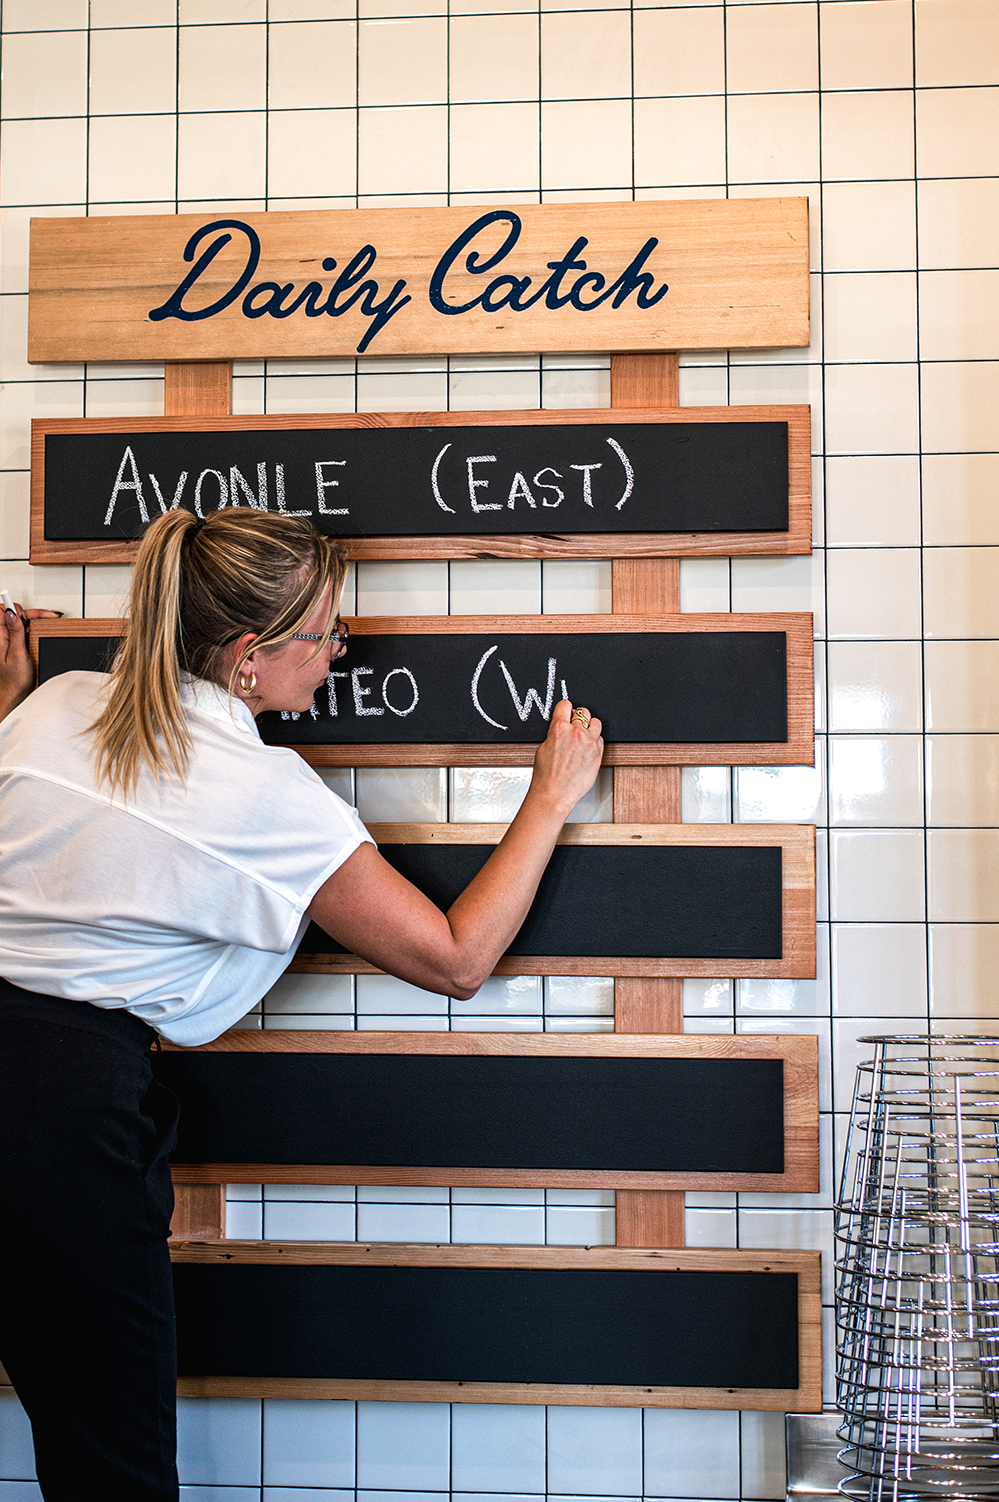 Daily Catch
AVONLE (EAST)
(W